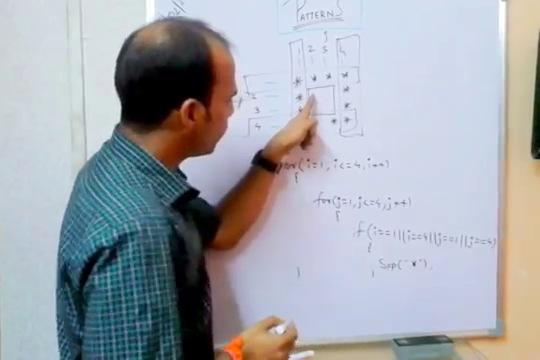 PATTERNS
j
1 2 3 4
* * * *
* *
2
3 *
4 * *
for(i=1, i<=4, i++)
{
for(j=1, j<=4, j++)
{
f(i==1||i==4||j==1||j==4)
{
Sop("*").
}